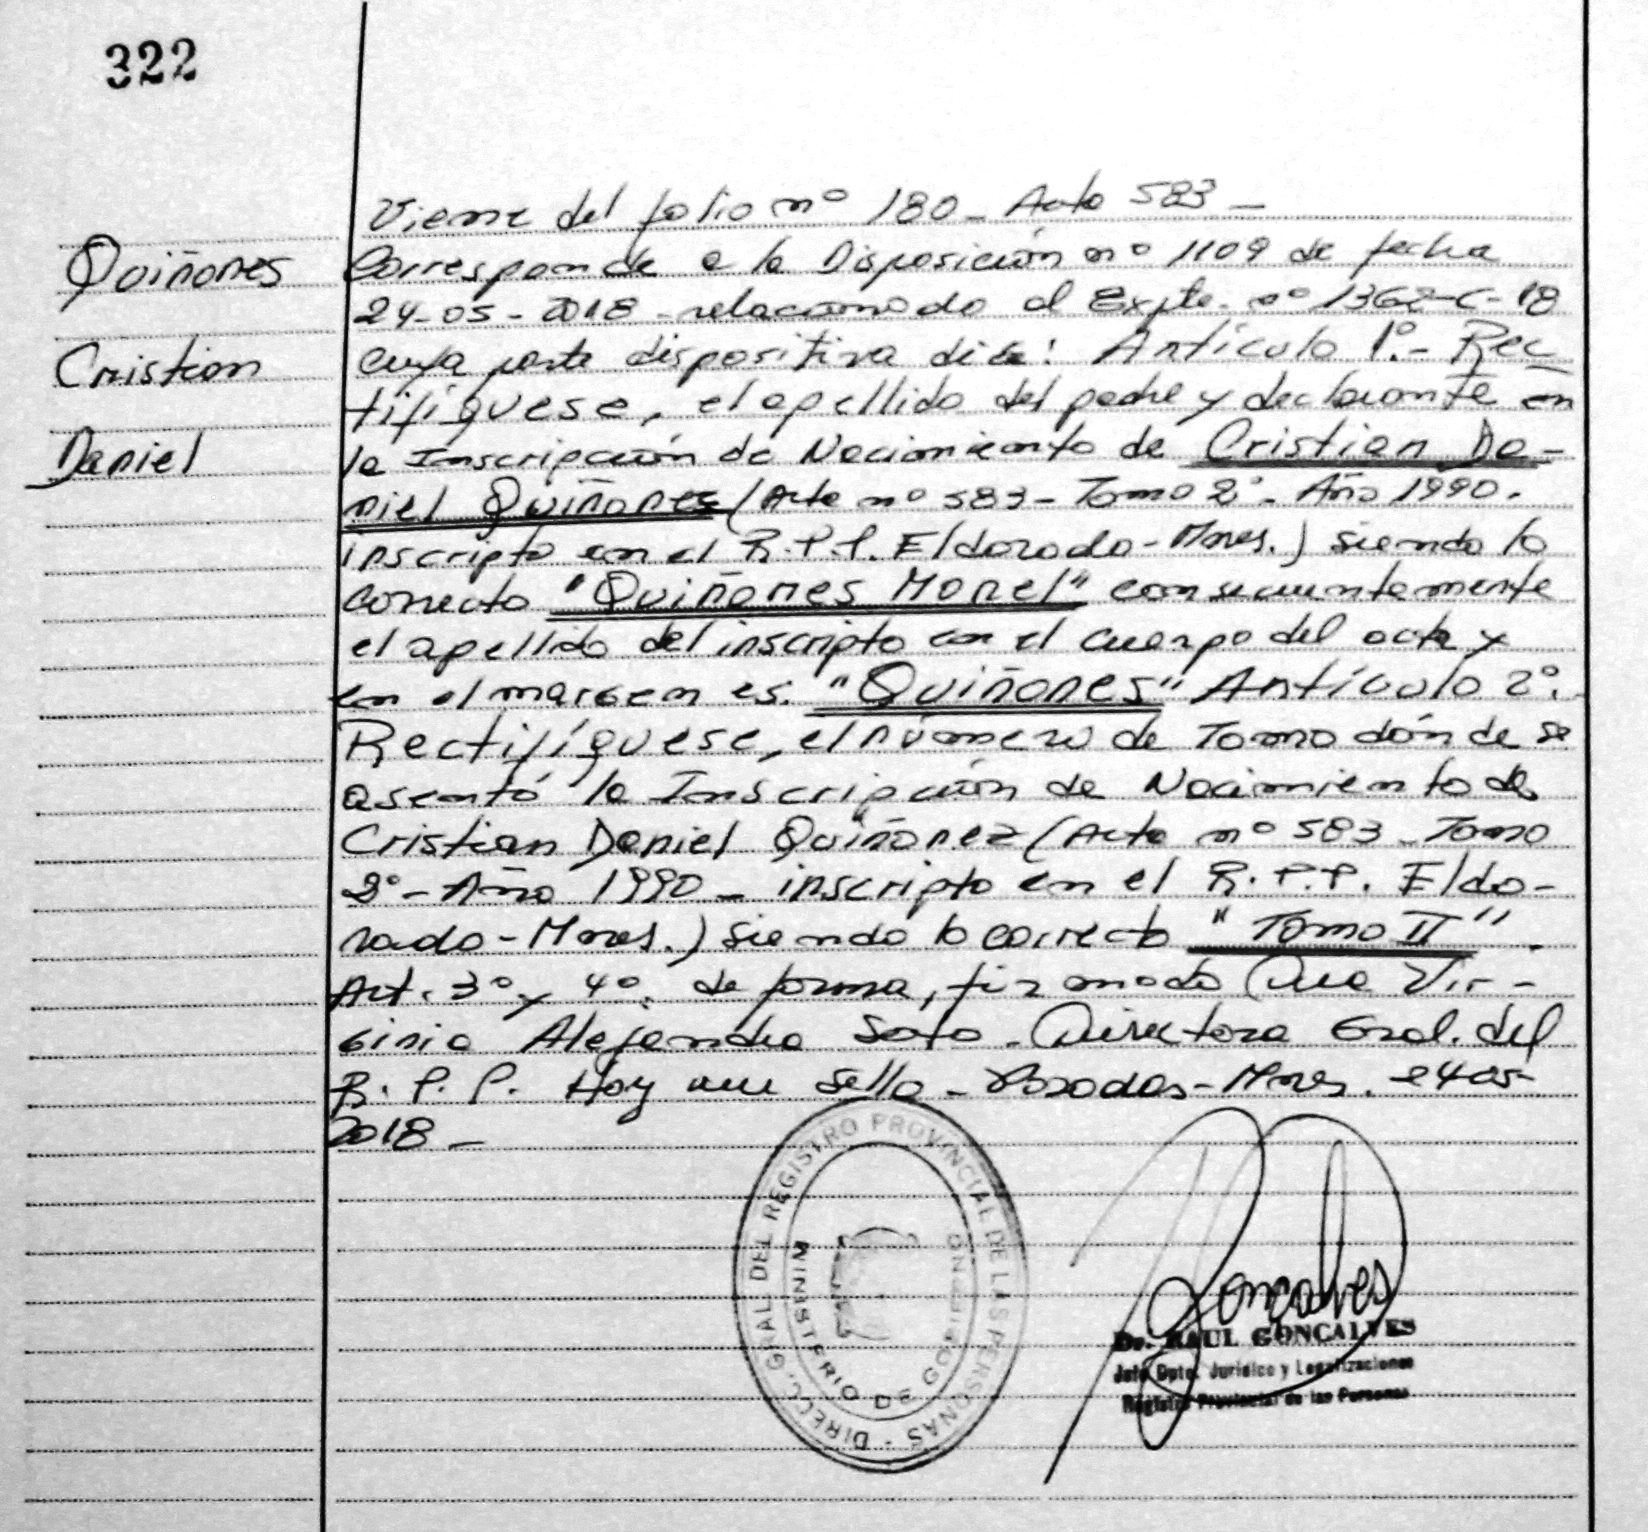 322
Quiñones
Cristian
Daniel
Viene del folio nº 180 - Acta 583 -
Corresponde a la Disposición nº 1109 de fecha
24-05-2018 - relacionado al Expte. nº 1362-C-18
cuya parte dispositiva dice: Artículo 1º.- Rec
tifíquese, el apellido del padre y declarante en
la Inscripción de Nacimiento de Cristian Da-
niel Quiñones (Acta nº 583 - Tomo 2º - Año 1990.
inscripto en el R.P.P. Eldorado - Mnes.) siendo lo
correcto "Quiñones Morel" consecuentemente
el apellido del inscripto en el cuerpo del acta y
en el margen es. "Quiñones" Artículo 2º.
Rectifíquese, el número de Tomo dónde se
asentó la Inscripción de Nacimiento de
Cristian Daniel Quiñonez (Acta nº 583 - Tomo
2º - Año 1990 - inscripto en el R.P.P. Eldo-
rado - Mnes.) siendo lo correcto "Tomo II".
Art. 3º y 4º. de forma, firmado Dra Vir-
ginia Alejandra Soto. Directora Gral. del
R.P.P. Hay un sello - Posadas - Mnes. 24-05-
2018 -
DIREC. GRAL. DEL REGISTRO PROVINCIAL DE LAS PERSONAS -
MINISTERIO DE GOBIERNO
Goncalves
Dr. RAUL GONCALVES
Jefe Dpto. Jurídico y Legalizaciones
Registro Provincial de las Personas